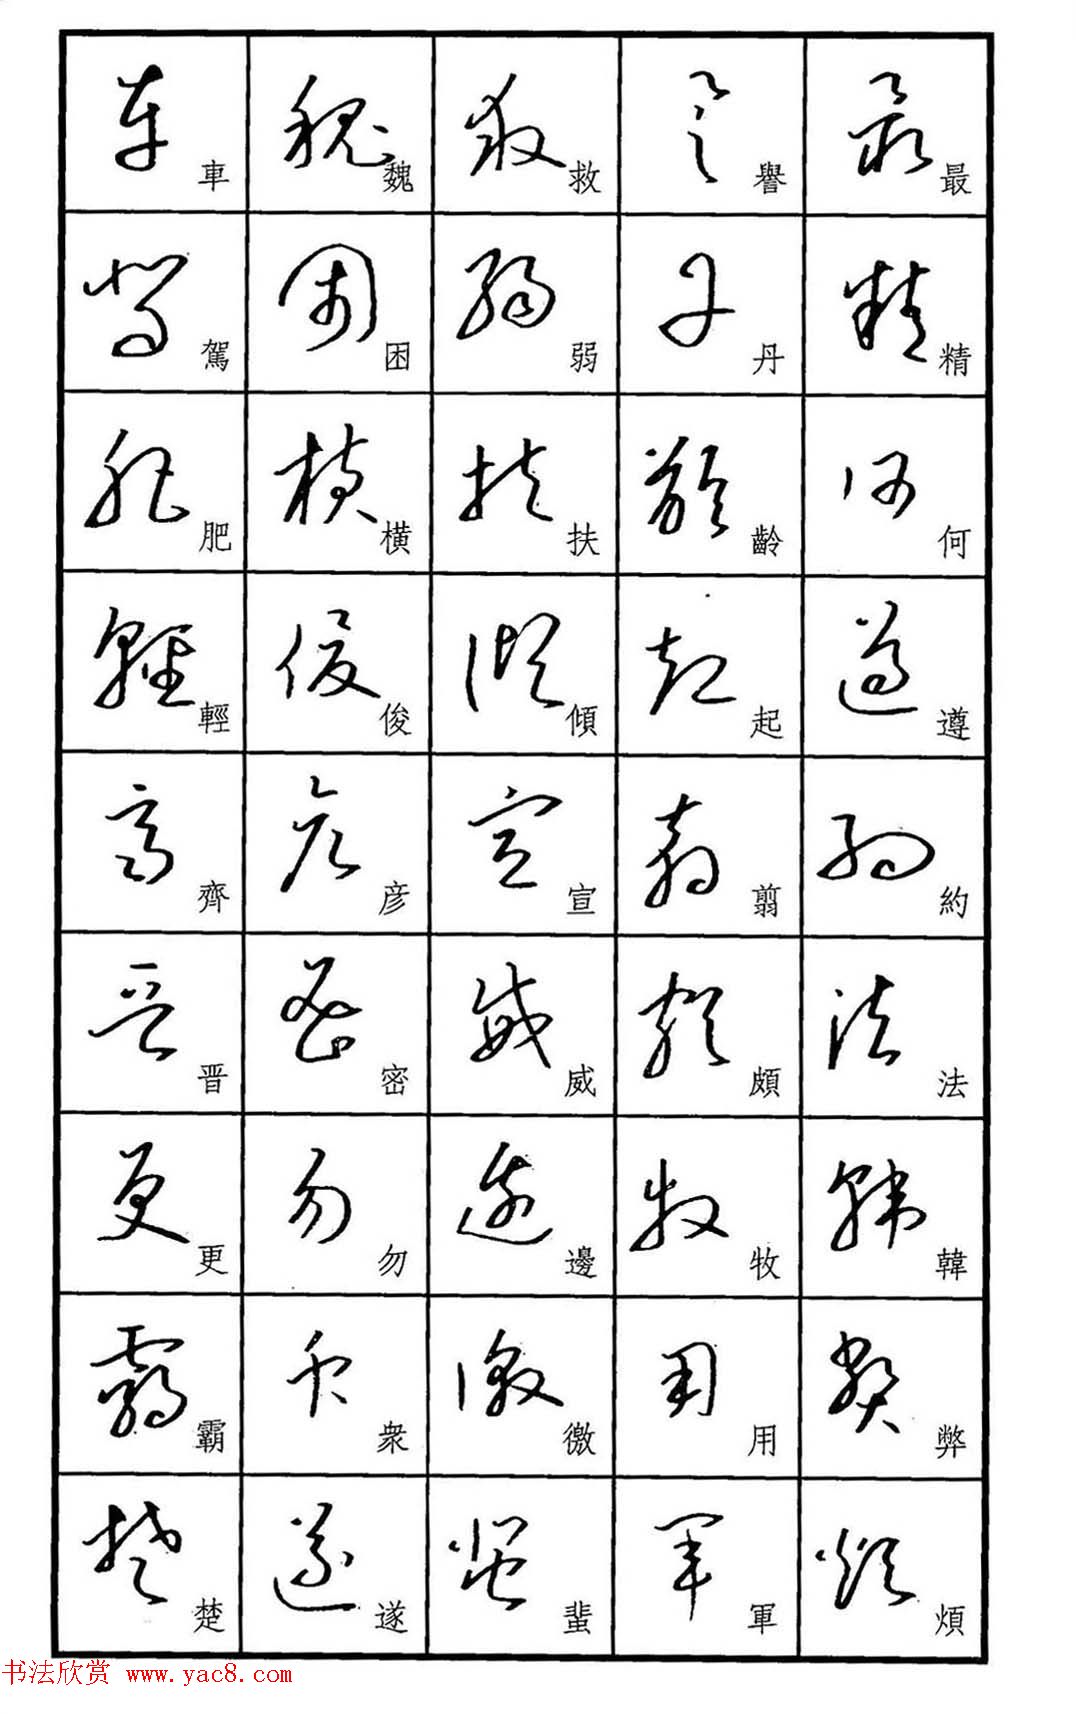 車 魏 救 譽 最
駕 困 弱 丹 精
肥 橫 扶 齡 何
輕 俊 傾 起 遵
齊 彦 宣 翦 約
晋 密 威 頗 法
更 勿 邊 牧 韓
霸 衆 徼 用 弊
楚 遂 蜚 軍 煩
书法欣赏 www.yac8.com